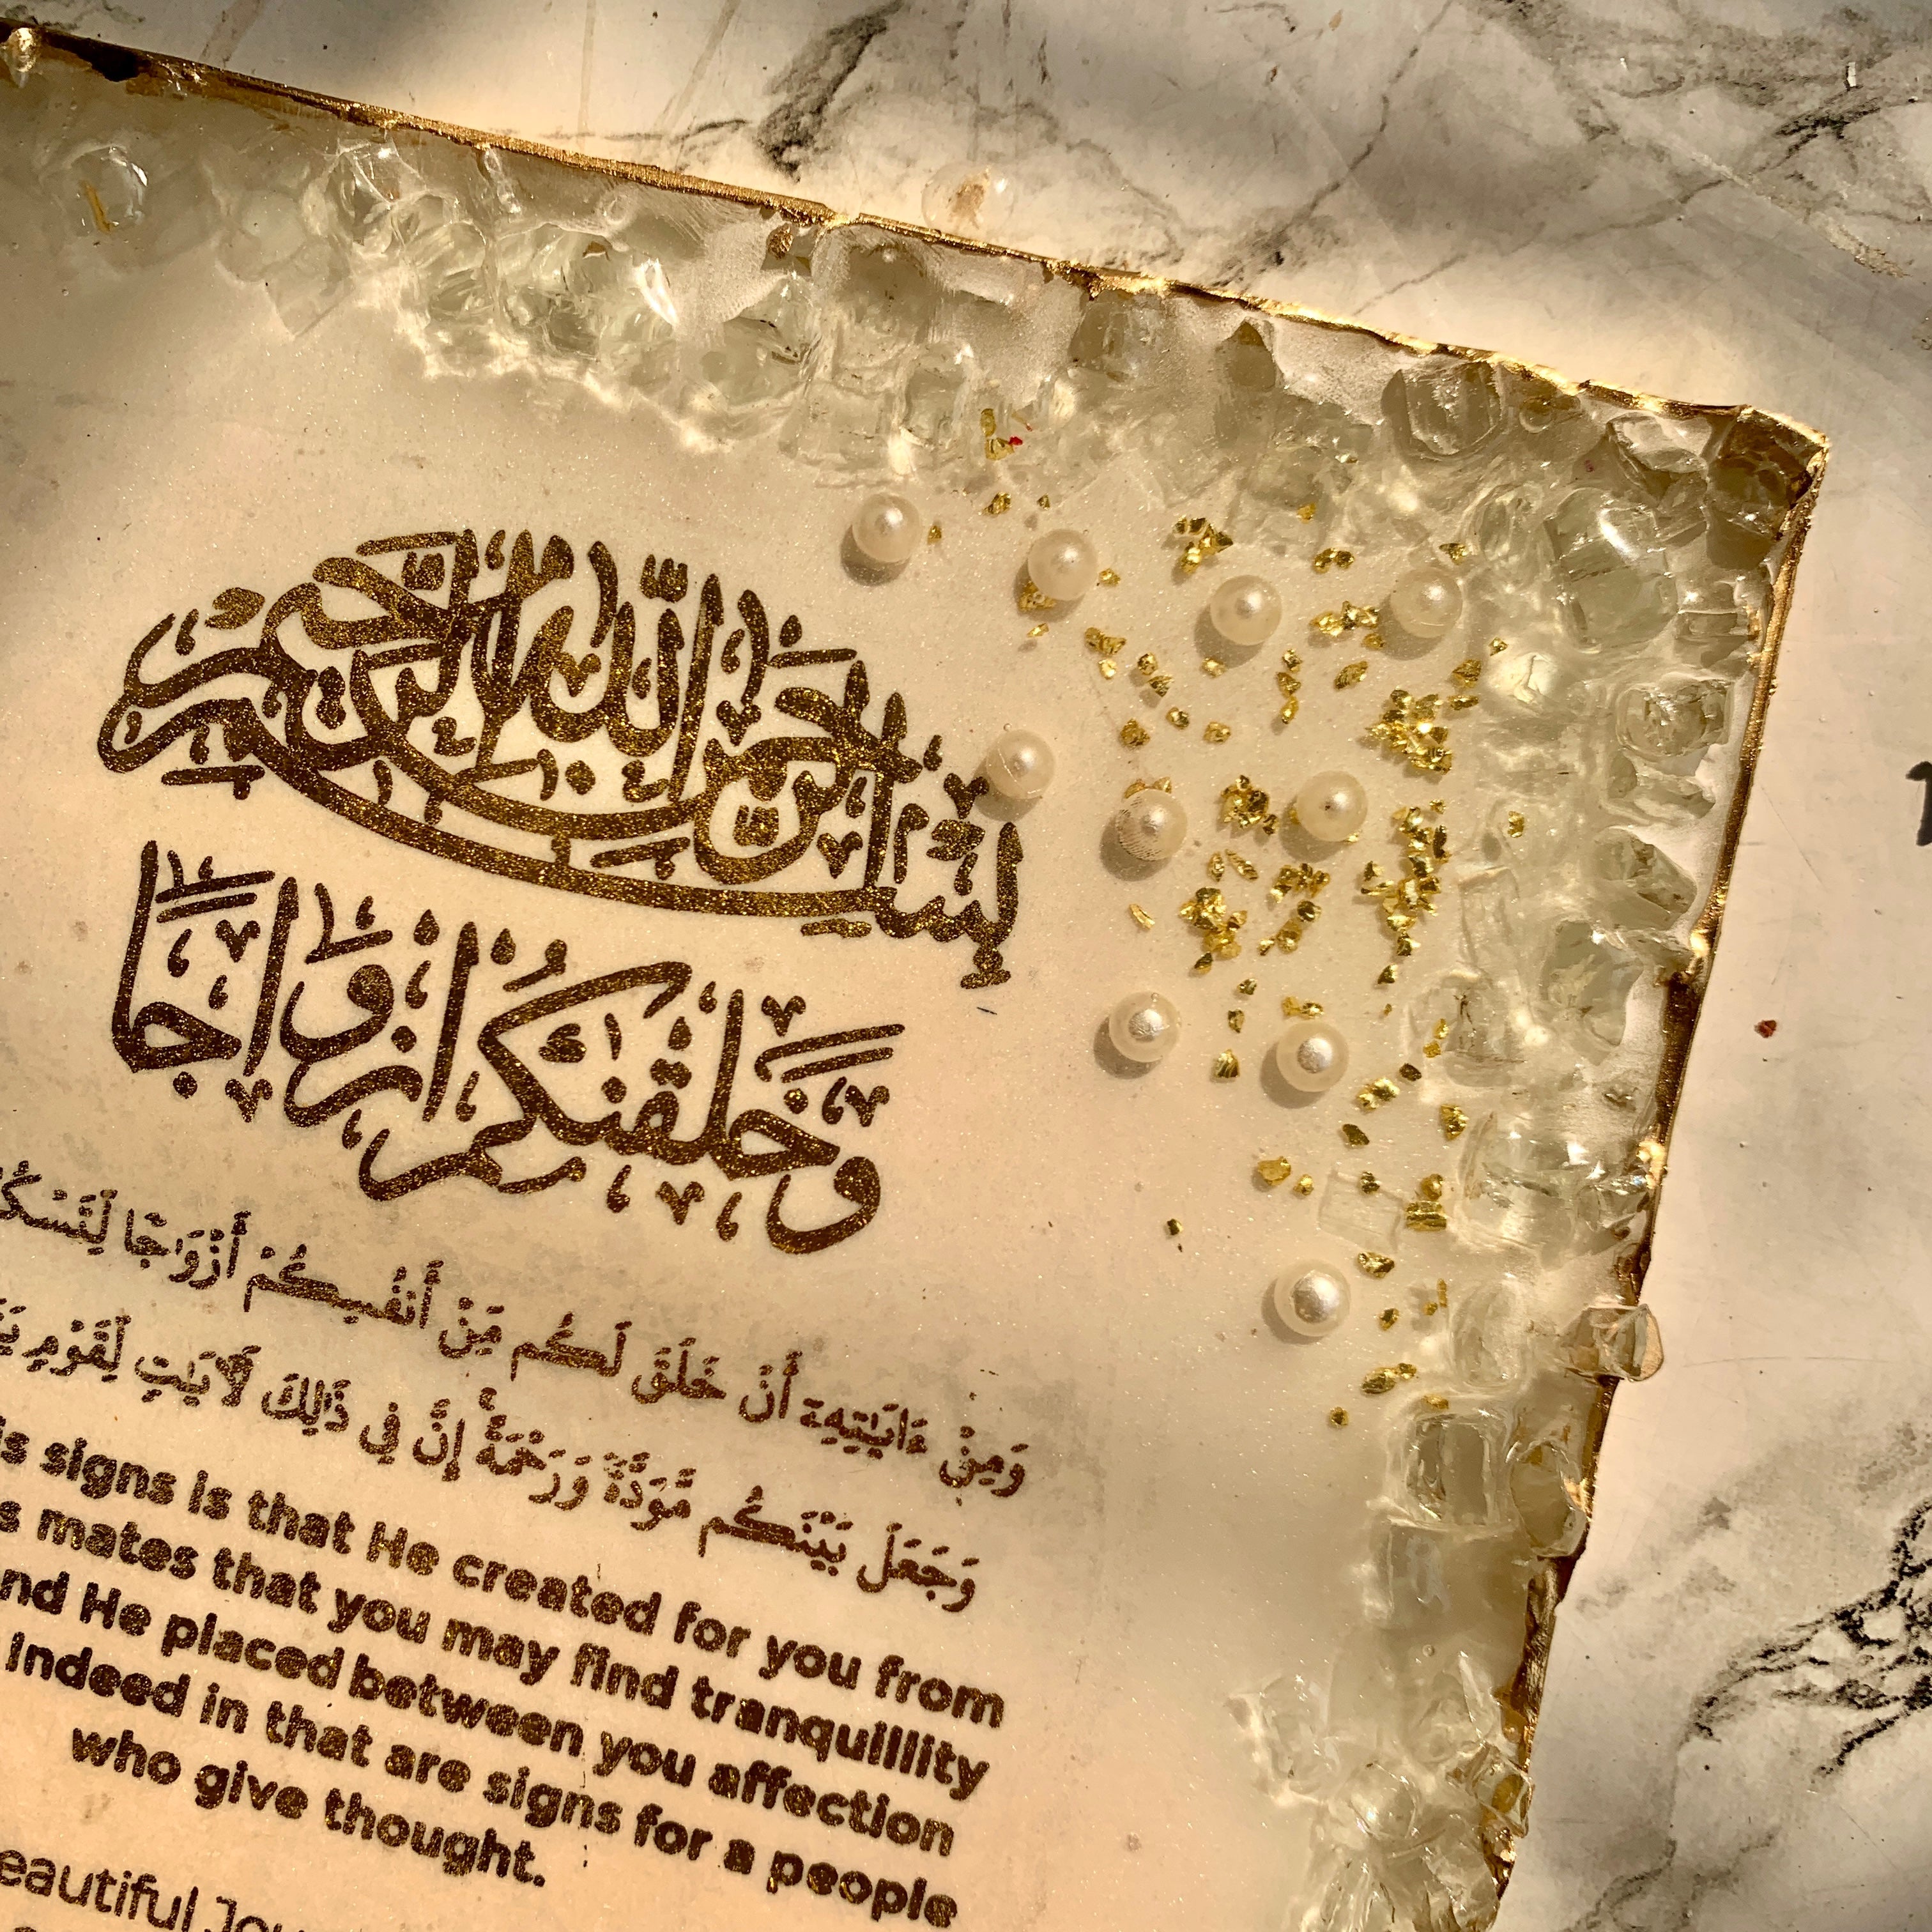 بِسْمِ اللهِ الرَّحْمٰنِ الرَّحِيمِ
وَّخَلَقْنٰكُمْ اَزْوَاجًا
وَمِنْ ءَايَٰتِهِۦٓ أَنْ خَلَقَ لَكُم مِّنْ أَنفُسِكُمْ أَزْوَٰجًا
وَجَعَلَ بَيْنَكُم مَّوَدَّةً وَرَحْمَةً ۚ إِنَّ فِى ذَٰلِكَ لَءَايَٰتٍ لِّقَوْمٍ
signs is that He created for you from
mates that you may find tranquillity
He placed between you affection
Indeed in that are signs for a people
who give thought.